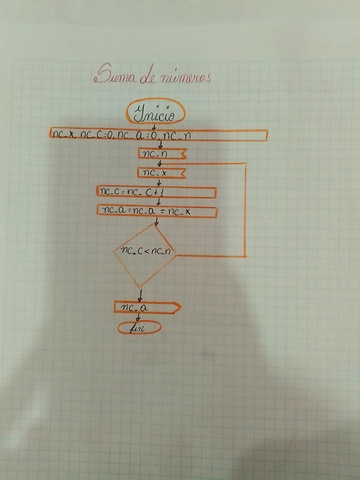 Suma de números
Inicio
nc_x, nc_c=0, nc_a=0, nc_n
nc_n
nc_x
nc_c=nc_c+1
nc_a=nc_a=nc_x
nc_c<nc_n
nc_a
fin